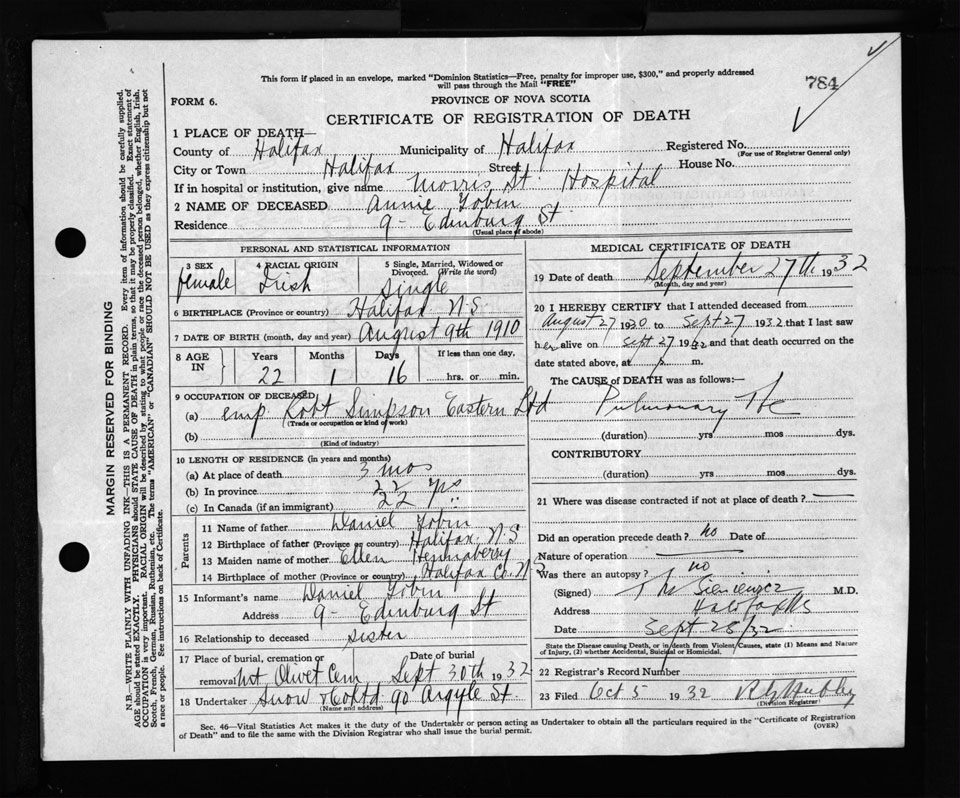 784
This form if placed in an envelope, marked "Dominion Statistics—Free, penalty for improper use, $300," and properly addressed
will pass through the Mail "FREE"
FORM 6.
PROVINCE OF NOVA SCOTIA
CERTIFICATE OF REGISTRATION OF DEATH
1 PLACE OF DEATH—
County of Halifax Municipality of Halifax Registered No.
(For use of Registrar General only)
City or Town Halifax Street House No.
If in hospital or institution, give name Morris St. Hospital
2 NAME OF DECEASED Annie Tobin
Residence 9- Edinburg St
(Usual place of abode)
PERSONAL AND STATISTICAL INFORMATION
3 SEX
female
4 RACIAL ORIGIN
Irish
5 Single, Married, Widowed or
Divorced. (Write the word)
Single
6 BIRTHPLACE (Province or country) Halifax N.S
7 DATE OF BIRTH (month, day and year) August 9th 1910
8 AGE IN
Years Months Days If less than one day,
22 1 16 hrs. or min.
9 OCCUPATION OF DECEASED
(a) emp Robt Simpson Eastern Ltd
(Trade or occupation or kind of work)
(b)
(Kind of industry)
10 LENGTH OF RESIDENCE (in years and months)
(a) At place of death 3 mos
(b) In province 22 yrs
(c) In Canada (if an immigrant) 22 ''
Parents
11 Name of father Daniel Tobin
12 Birthplace of father (Province or country) Halifax, N.S
13 Maiden name of mother Ellen
14 Birthplace of mother (Province or country) Halifax Co. N.S
15 Informant's name Daniel Tobin
Address 9- Edinburg St
16 Relationship to deceased sister
17 Place of burial, cremation or removal Date of burial
Mt Olivet Cem Sept 30th 1932
18 Undertaker Snow & Co Ltd 90 Argyle St
(Name and address)
MEDICAL CERTIFICATE OF DEATH
19 Date of death September 27th 1932
(Month, day and year)
20 I HEREBY CERTIFY that I attended deceased from
August 27 1930 to Sept 27 1932 that I last saw
her alive on Sept 27 1932 and that death occurred on the
date stated above, at p m.
The CAUSE of DEATH was as follows:—
Pulmonary Tbc
(duration) yrs mos dys.
CONTRIBUTORY
(duration) yrs mos dys.
21 Where was disease contracted if not at place of death?
Did an operation precede death? no Date of
Nature of operation
Was there an autopsy? no
(Signed) M.D.
Address Halifax NS
Date Sept 28/32
State the Disease causing Death, or in death from Violent Causes, state (1) Means and Nature
of Injury, (2) whether Accidental, Suicidal or Homicidal.
22 Registrar's Record Number
23 Filed Oct 5 1932
(Division Registrar)
Sec. 46—Vital Statistics Act makes it the duty of the Undertaker or person acting as Undertaker to obtain all the particulars required in the "Certificate of Registration
of Death" and to file the same with the Division Registrar who shall issue the burial permit.
(OVER)
MARGIN RESERVED FOR BINDING
N.B.—WRITE PLAINLY WITH UNFADING INK—THIS IS A PERMANENT RECORD. Every item of information should be carefully supplied.
AGE should be stated EXACTLY. PHYSICIANS should STATE CAUSE OF DEATH in plain terms, so that it may be properly classified. Exact statement of
OCCUPATION is very important. RACIAL ORIGIN will be described by stating to what people or race the deceased person belonged, whether English, Irish,
Scotch, French, German, Russian, Ruthenian, etc. The terms "AMERICAN" or "CANADIAN" SHOULD NOT BE USED as they express citizenship but not
a race or people. See instructions on back of Certificate.